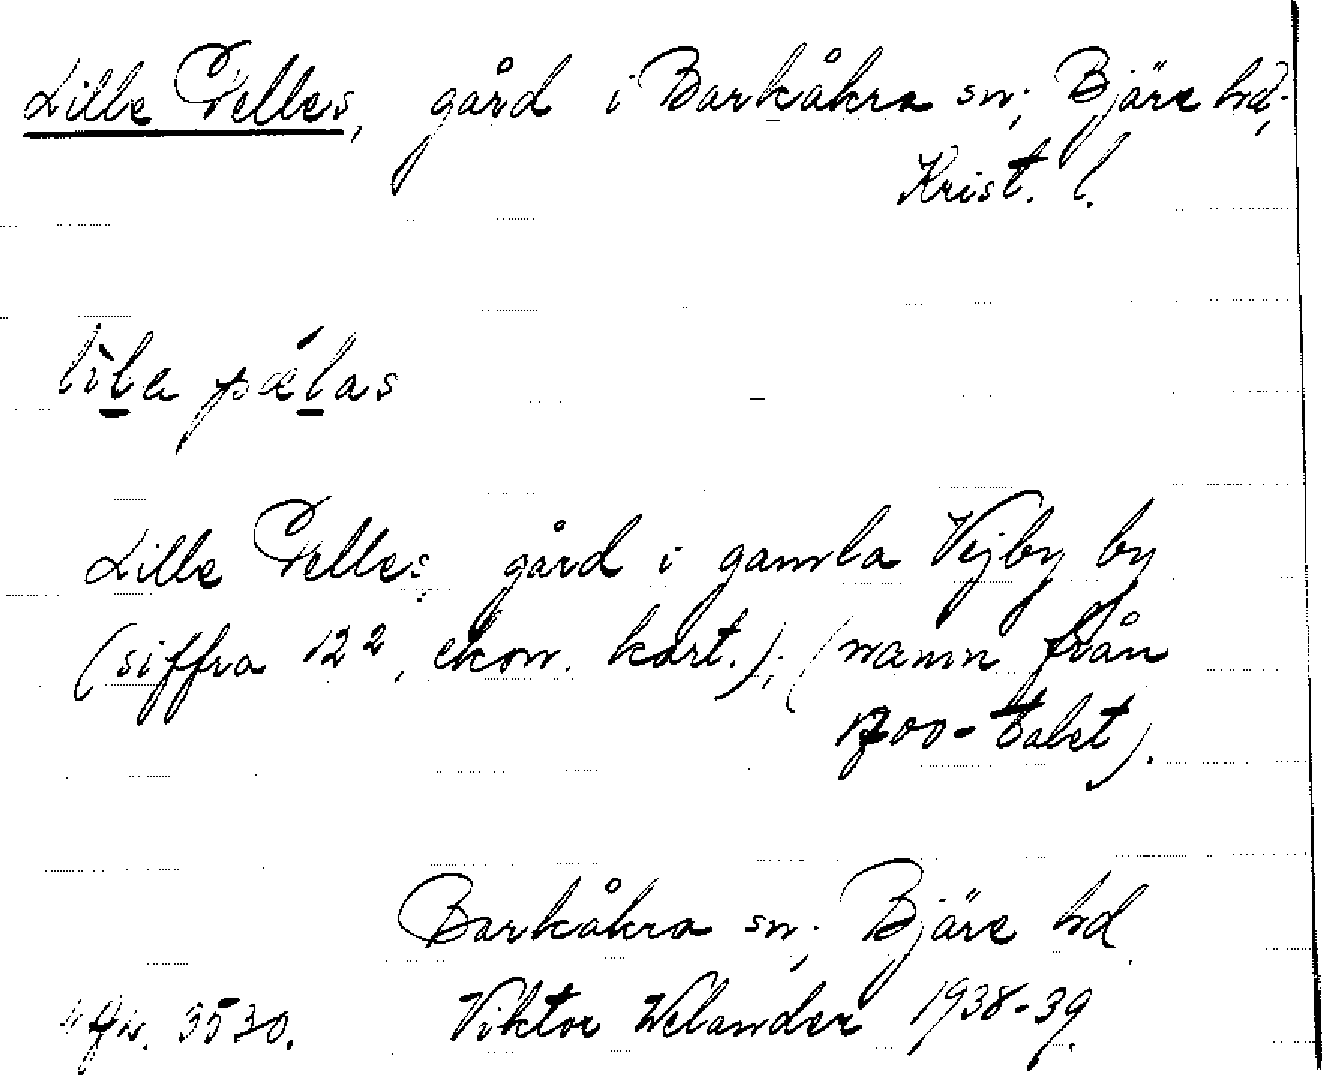 Lille Pelles, gård i Barkåkra sn; Bjäre hd;
Krist. l.
lìla pǽlas
Lille Pelles, gård i gamla Vejby by
(siffra 12², ekon. kart.); (namn från
1700-talet).
Barkåkra sn; Bjäre hd.
3530. Viktor Welander 1938-39.